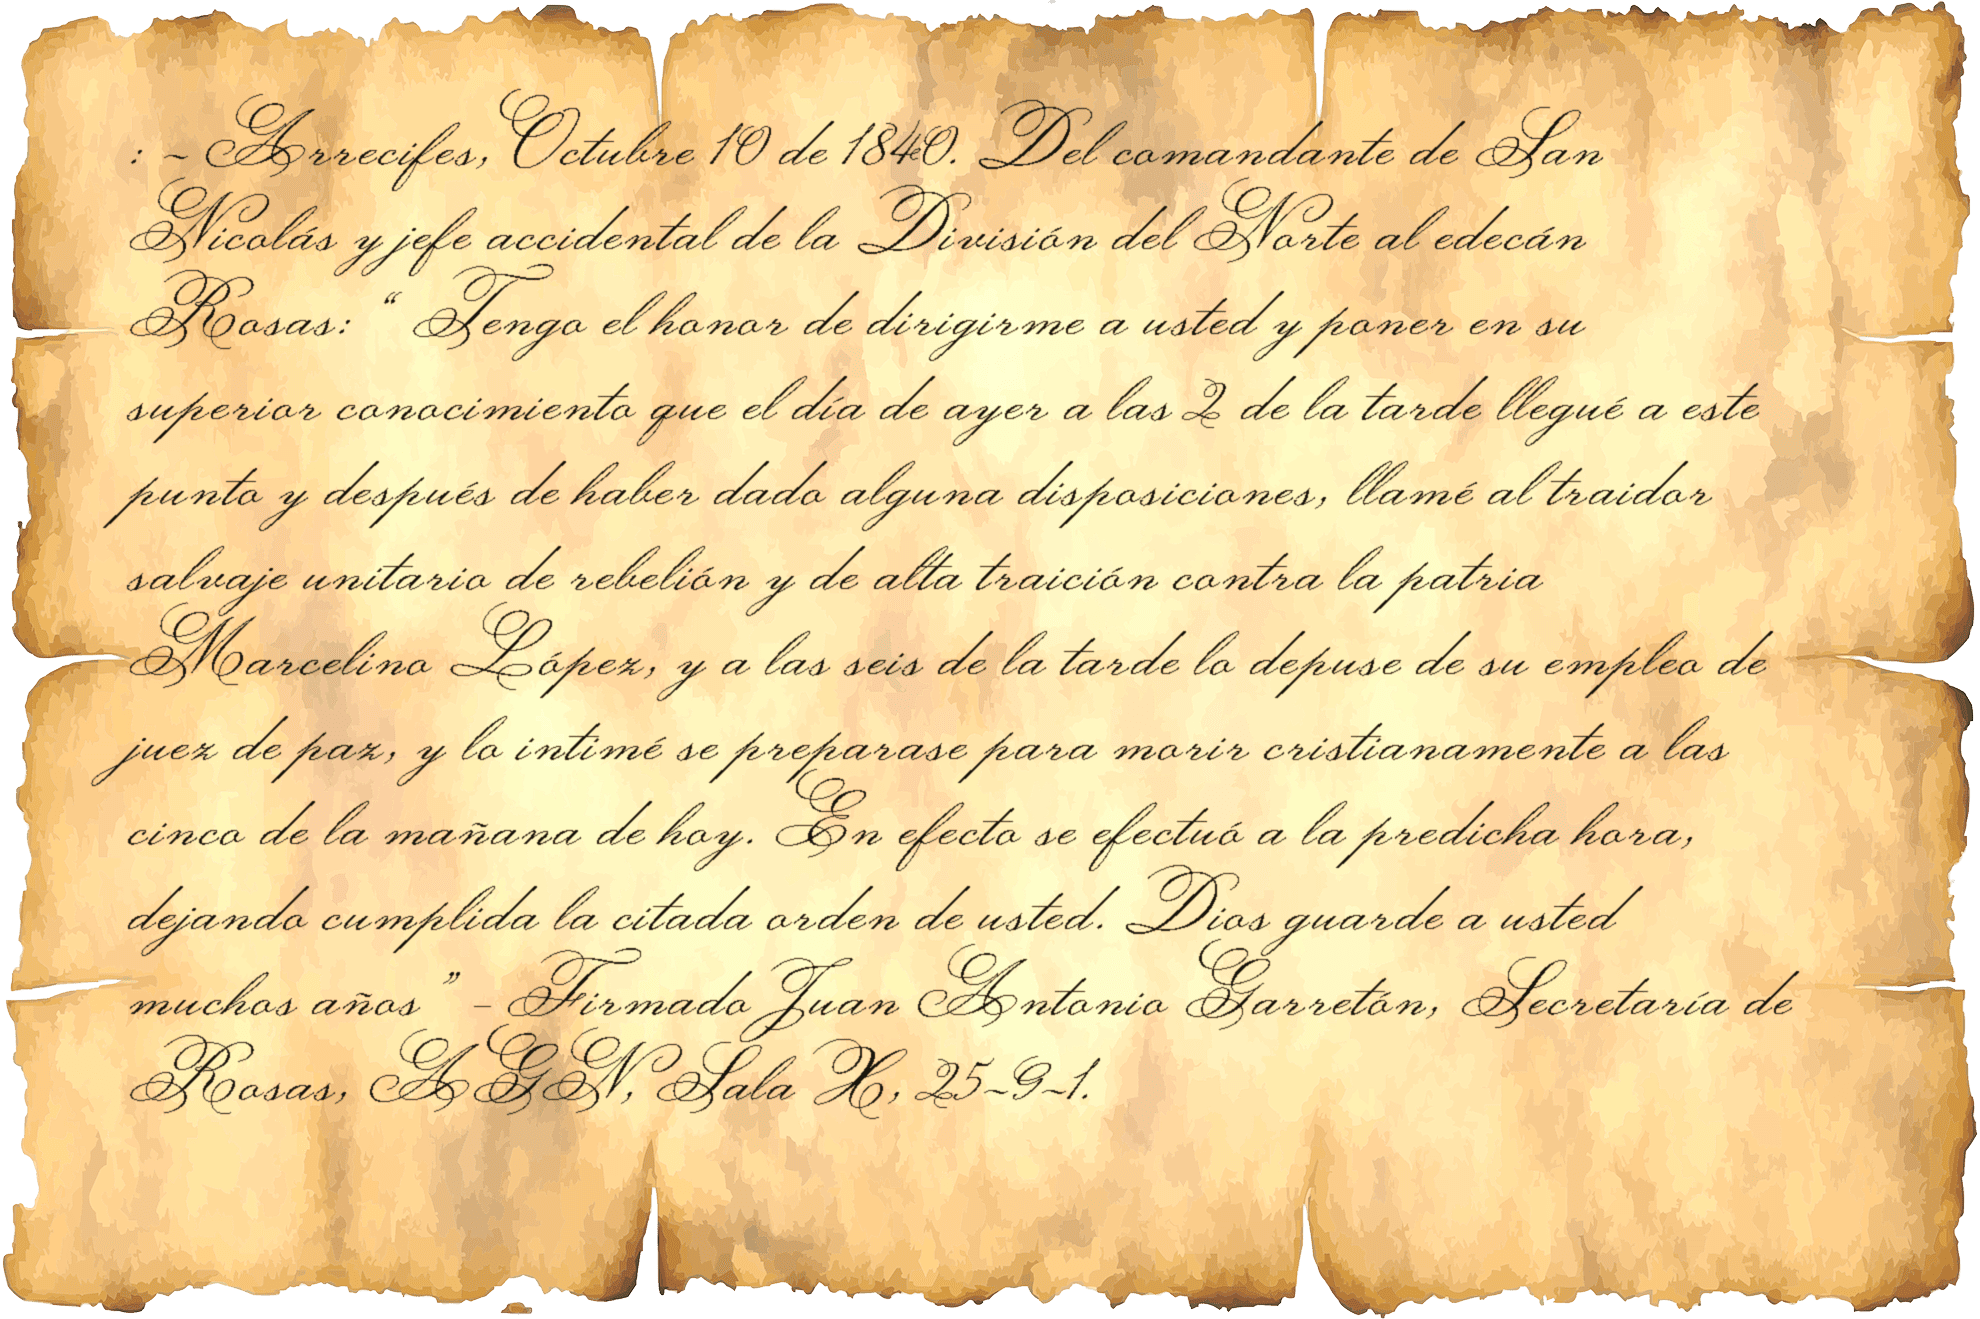 : - Arrecifes, Octubre 10 de 1840. Del comandante de San
Nicolás y jefe accidental de la División del Norte al edecán
Rosas: “ Tengo el honor de dirigirme a usted y poner en su
superior conocimiento que el día de ayer a las 2 de la tarde llegué a este
punto y después de haber dado alguna disposiciones, llamé al traidor
salvaje unitario de rebelión y de alta traición contra la patria
Marcelino López, y a las seis de la tarde lo depuse de su empleo de
juez de paz, y lo intimé se preparase para morir cristianamente a las
cinco de la mañana de hoy. En efecto se efectuó a la predicha hora,
dejando cumplida la citada orden de usted. Dios guarde a usted
muchos años ” - Firmado Juan Antonio Garretón, Secretaría de
Rosas, AGN, Sala X, 25-9-1.